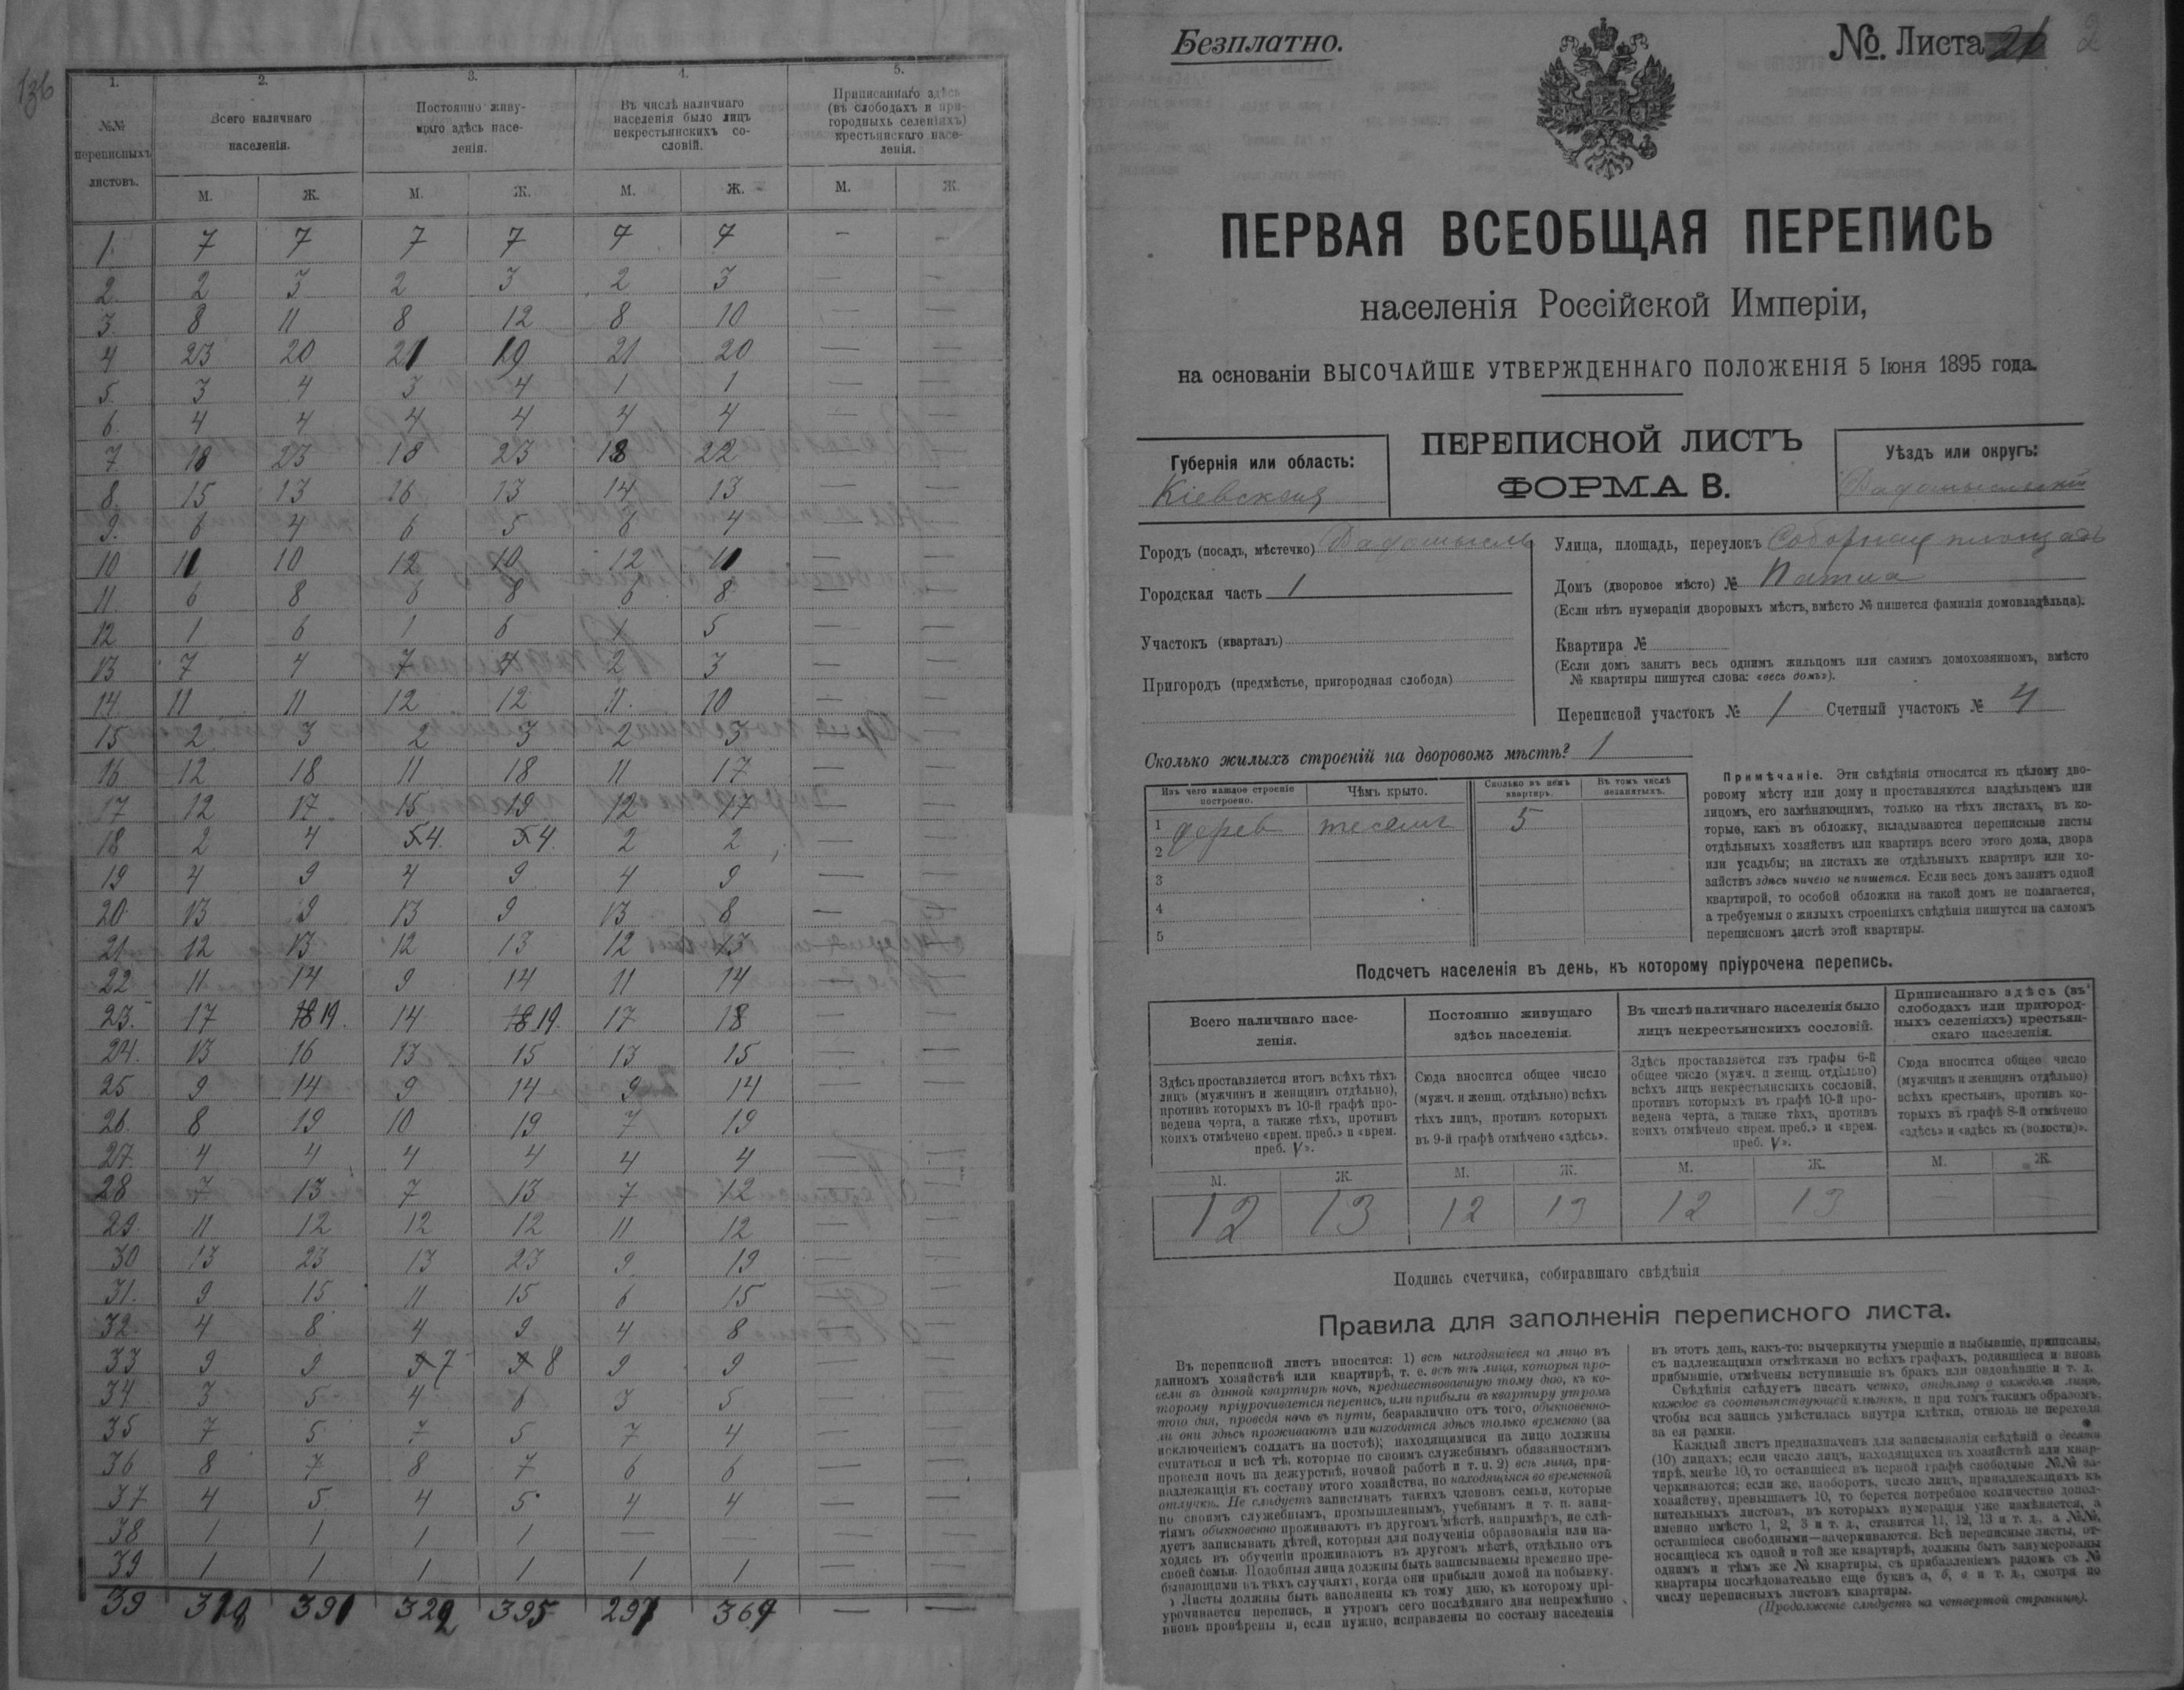 136
1. 2. 3. 4. 5.
№№ переписныхъ листовъ.
Всего наличнаго населенія.
Постоянно живущаго здѣсь населенія.
Въ числѣ наличнаго населенія было лицъ некрестьянскихъ сословій.
Приписаннаго здѣсь (въ слободахъ и пригородныхъ селеніяхъ) крестьянскаго населенія.
М. Ж. М. Ж. М. Ж. М. Ж.
1. 7 7 7 7 7 7 - -
2. 2 3 2 3 2 3 — —
3. 8 11 8 12 8 10 — —
4 23 20 21 19 21 20 — —
5. 3 4 3 4 1 1 — —
6. 4 4 4 4 4 4 — —
7. 18 23 18 23 18 22 — —
8. 15 13 16 13 14 13 — —
9. 6 4 6 5 6 4 — —
10 11 10 12 10 12 10 — —
11. 6 8 6 8 6 8 — —
12 1 6 1 6 1 5 — —
13 7 4 7 4 2 3 — —
14. 11 11 12 12 11. 10 — —
15 2 3 2 3 2 3 — —
16. 12 18 11 18 11 17 — —
17 12 17 15 19 12 17 — —
18 2 4 5 4. 5 4. 2 2 — —
19 4 9 4 9 4 9 — —
20. 13 9 13 9 13 8 — —
21. 12 13 12 13 12 13 — —
22 11 14 9 14 11 14 — —
23. 17 18 19. 14 18 19. 17 18 — —
24. 13 16 13 15 13 15 — —
25 9 14 9 14 9 14 — —
26. 8 19 10 19 7 19 — —
27. 4 4 4 4 4 4 — —
28 7 13 7 13 7 12 — —
29. 11 12 12 12 11 12 — —
30 13 23 13 23 9 19 — —
31. 9 15 11 15 6 15 — —
32. 4 8 4 9 4 8 — —
33 9 9 9 7 9 8 9 9 — —
34. 3 5 4 6 3 5 — —
35 7 5 7 5 7 4 — —
36 8 7 8 7 6 6 — —
37 4 5 4 5 4 4 — —
38 1 1 1 1 — — —
39 1 1 1 1 1 1 — —
39 318 391 329 395 297 367 — —
Безплатно.
№. Листа 2
ПЕРВАЯ ВСЕОБЩАЯ ПЕРЕПИСЬ
населенія Россійской Имперіи,
на основаніи ВЫСОЧАЙШЕ УТВЕРЖДЕННАГО ПОЛОЖЕНІЯ 5 Іюня 1895 года.
Губернія или область:
Кіевская
ПЕРЕПИСНОЙ ЛИСТЪ
ФОРМА В.
Уѣздъ или округъ:
Радомысльскій
Городъ (посадъ, мѣстечко) Радомысль
Городская часть 1
Участокъ (кварталъ)
Пригородъ (предмѣстье, пригородная слобода)
Улица, площадь, переулокъ Соборная площадь
Домъ (дворовое мѣсто) №
(Если нѣтъ нумераціи дворовыхъ мѣстъ, вмѣсто № пишется фамилія домовладѣльца).
Квартира №
(Если домъ занятъ весь однимъ жильцомъ или самимъ домохозяиномъ, вмѣсто
№ квартиры пишутся слова: «весь домъ»).
Переписной участокъ № 1 Счетный участокъ № 4
Сколько жилыхъ строеній на дворовомъ мѣстѣ? 1
Изъ чего каждое строеніе построено. Чѣмъ крыто. Сколько въ немъ квартиръ. Въ томъ числѣ незанятыхъ.
1 дерев тесомъ 5
2
3
4
5
Примѣчаніе. Эти свѣдѣнія относятся къ цѣлому дво-
ровому мѣсту или дому и проставляются владѣльцемъ или
лицомъ, его замѣняющимъ, только на тѣхъ листахъ, въ ко-
торые, какъ въ обложку, вкладываются переписные листы
отдѣльныхъ хозяйствъ или квартиръ всего этого дома, двора
или усадьбы; на листахъ же отдѣльныхъ квартиръ или хо-
зяйствъ здѣсь ничего не пишется. Если весь домъ занятъ одной
квартирой, то особой обложки на такой домъ не полагается,
а требуемыя о жилыхъ строеніяхъ свѣдѣнія пишутся на самомъ
переписномъ листѣ этой квартиры.
Подсчетъ населенія въ день, къ которому пріурочена перепись.
Всего наличнаго населенія.
Постоянно живущаго здѣсь населенія.
Въ числѣ наличнаго населенія было лицъ некрестьянскихъ сословій.
Приписаннаго здѣсь (въ слободахъ или пригородныхъ селеніяхъ) крестьянскаго населенія.
Здѣсь проставляется итогъ всѣхъ тѣхъ
лицъ (мужчинъ и женщинъ отдѣльно),
противъ которыхъ въ 10-й графѣ про-
ведена черта, а также тѣхъ, противъ
коихъ отмѣчено «врем. преб.» и «врем.
преб. V».
Сюда вносится общее число
(мужч. и женщ. отдѣльно) всѣхъ
тѣхъ лицъ, противъ которыхъ
въ 9-й графѣ отмѣчено «здѣсь».
Здѣсь проставляется изъ графы 6-й
общее число (мужч. и женщ. отдѣльно)
всѣхъ лицъ некрестьянскихъ сословій,
противъ которыхъ въ графѣ 10-й про-
ведена черта, а также тѣхъ, противъ
коихъ отмѣчено «врем. преб.» и «врем.
преб. V».
Сюда вносится общее число
(мужчинъ и женщинъ отдѣльно)
всѣхъ крестьянъ, противъ ко-
торыхъ въ графѣ 8-й отмѣчено
«здѣсь» и «здѣсь къ (волости)».
М. Ж. М. Ж. М. Ж. М. Ж.
12 13 12 13 12 13
Подпись счетчика, собиравшаго свѣдѣнія
Правила для заполненія переписного листа.
Въ переписной листъ вносятся: 1) всѣ находящіеся на лицо въ
данномъ хозяйствѣ или квартирѣ, т. е. всѣ тѣ лица, которыя про-
вели въ данной квартирѣ ночь, предшествовавшую тому дню, къ ко-
торому пріурочивается перепись, или прибыли въ квартиру утромъ
того дня, проведя ночь въ пути, безразлично отъ того, обыкновенно-
ли они здѣсь проживаютъ или находятся здѣсь только временно (за
исключеніемъ солдатъ на постоѣ); находящимися на лицо должны
считаться и всѣ тѣ, которые по своимъ служебнымъ обязанностямъ
провели ночь на дежурствѣ, ночной работѣ и т. п. 2) всѣ лица, при-
надлежащія къ составу этого хозяйства, но находящіяся во временной
отлучкѣ. Не слѣдуетъ записывать такихъ членовъ семьи, которые
по своимъ служебнымъ, промышленнымъ, учебнымъ и т. п. заня-
тіямъ обыкновенно проживаютъ въ другомъ мѣстѣ, напримѣръ, не слѣ-
дуетъ записывать дѣтей, которыя для полученія образованія или на-
ходясь въ обученіи проживаютъ въ другомъ мѣстѣ, отдѣльно отъ
своей семьи. Подобныя лица должны быть записываемы временно пре-
бывающими въ тѣхъ случаяхъ, когда они прибыли домой на побывку.
Листы должны быть заполнены къ тому дню, къ которому прі-
урочивается перепись, и утромъ сего послѣдняго дня непремѣнно
вновь провѣрены и, если нужно, исправлены по составу населенія
въ этотъ день, какъ-то: вычеркнуты умершіе и выбывшіе, приписаны,
съ надлежащими отмѣтками во всѣхъ графахъ, родившіеся и вновь
прибывшіе, отмѣчены вступившіе въ бракъ или овдовѣвшіе и т. д.
Свѣдѣнія слѣдуетъ писать четко, отдѣльно о каждомъ лицѣ,
каждое въ соотвѣтствующей клѣткѣ, и при томъ такимъ образомъ,
чтобы вся запись умѣстилась внутри клѣтки, отнюдь не переходя
за ея рамки.
Каждый листъ предназначенъ для записыванія свѣдѣній о десяти
(10) лицахъ; если число лицъ, находящихся въ хозяйствѣ или квар-
тирѣ, менѣе 10, то оставшіеся въ первой графѣ свободные №№ за-
черкиваются; если же, наоборотъ, число лицъ, принадлежащихъ къ
хозяйству, превышаетъ 10, то берется потребное количество допол-
нительныхъ листовъ, въ которыхъ нумерація уже измѣняется, а
именно вмѣсто 1, 2, 3 и т. д., ставится 11, 12, 13 и т. д., а №№,
оставшіеся свободными—зачеркиваются. Всѣ переписные листы, от-
носящіеся къ одной и той же квартирѣ, должны быть занумерованы
однимъ и тѣмъ же № квартиры, съ прибавленіемъ рядомъ съ №
квартиры послѣдовательно еще буквъ а, б, в и т. д., смотря по
числу переписныхъ листовъ квартиры.
(Продолженіе слѣдуетъ на четвертой страницѣ).